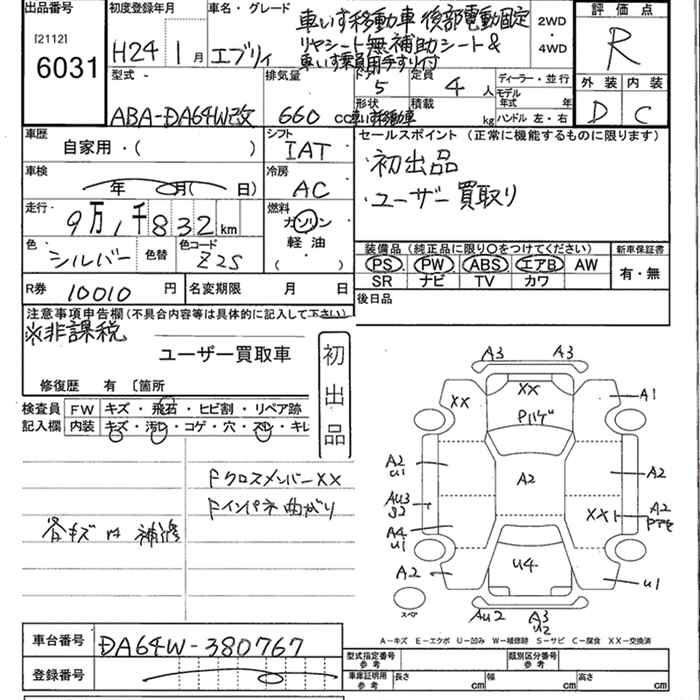 出品番号 初度登録年月 車名・グレード 車いす移動車 後部電動固定 評価点
[2112] 6031 H24 1月 エブリィ リヤシート無 補助シート& 2WD・4WD R
車いす乗員用手すり付
型式 排気量 ドア 5 定員 4人 ディーラー・並行 外装 内装
ABA-DA64W改 660 cc 形状 車いす移動車 積載 kg モデル年式 年 ハンドル 左・右 D C
車歴 自家用・( ) シフト IAT セールスポイント (正常に機能するものに限ります)
車検 年 月( 日) 冷房 AC ・初出品
走行 9万1千832km 燃料 ガソリン 軽油 ( ) ・ユーザー買取り
色 シルバー 色替 色コード Z2S 装備品 (純正品に限り○をつけてください) 新車保証書
PS PW ABS エアB AW 有・無
SR ナビ TV カワ
R券 10010円 名変期限 月 日 後日品
注意事項申告欄(不具合内容等は具体的に記入して下さい)
※非課税
ユーザー買取車 初出品
修復歴 有 〔箇所
検査員記入欄 FW キズ・飛石・ヒビ割・リペア跡
内装 キズ・汚れ・コゲ・穴・スレ・キレ
Fクロスメンバー××
Fインパネ曲がり
各キズ有 補修
A3 A3
XX XX A1
Pハゲ
A2 U1 A2 A2
AU3 S2 XX1 A2 Pアセ
A4 U1
A2 U4 U1
スペア AU2 A3 U2
A-キズ E-エクボ U-凹み W-補修跡 S-サビ C-腐食 XX-交換済
車台番号 DA64W-380767
型式指定番号 参考 類別区分番号 参考
登録番号 車庫証明用 参考 長さ cm 幅 cm 高さ cm